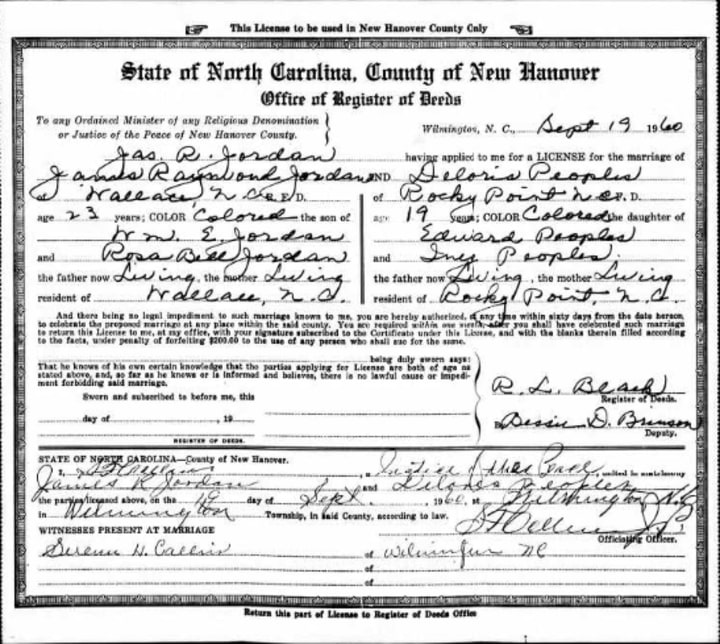 This License to be used in New Hanover County Only
State of North Carolina, County of New Hanover
Office of Register of Deeds
To any Ordained Minister of any Religious Denomination
or Justice of the Peace of New Hanover County.
Wilmington, N. C., Sept 19 1960
Jas. R. Jordan having applied to me for a LICENSE for the marriage of
James Raymond Jordan AND Deloris Peoples
of Wallace, N C R.F.D. of Rocky Point N C R.F.D.
age 23 years; COLOR Colored the son of age 19 years; COLOR Colored the daughter of
Wm. E. Jordan Edward Peoples
and Rosa Bell Jordan and Peoples
the father now Living, the mother Living the father now Living, the mother Living
resident of Wallace, N. C. resident of Rocky Point, N. C.
And there being no legal impediment to such marriage known to me, you are hereby authorized, at any time within sixty days from the date hereon,
to celebrate the proposed marriage at any place within the said county. You are required within one month after you shall have celebrated such marriage
to return this License to me, at my office, with your signature subscribed to the Certificate under this License, and with the blanks therein filled according
to the facts, under penalty of forfeiting $200.00 to the use of any person who shall sue for the same.
being duly sworn says:
That he knows of his own certain knowledge that the parties applying for License are both of age as
stated above, and, so far as he knows or is informed and believes, there is no lawful cause or impedi-
ment forbidding said marriage.
Sworn and subscribed to before me, this
day of , 19
REGISTER OF DEEDS.
R. L. Black
Register of Deeds.
By Dessie D. Brinson
Deputy.
STATE OF NORTH CAROLINA—County of New Hanover.
I, , a Justice of the Peace, united in matrimony
James R. Jordan and Deloris Peoples
the parties licensed above, on the 19 day of Sept. 1960, at Wilmington N.C.
in Wilmington Township, in said County, according to law.
J.P.
Officiating Officer.
WITNESSES PRESENT AT MARRIAGE
H. of Wilmington NC
of
of
Return this part of License to Register of Deeds Office